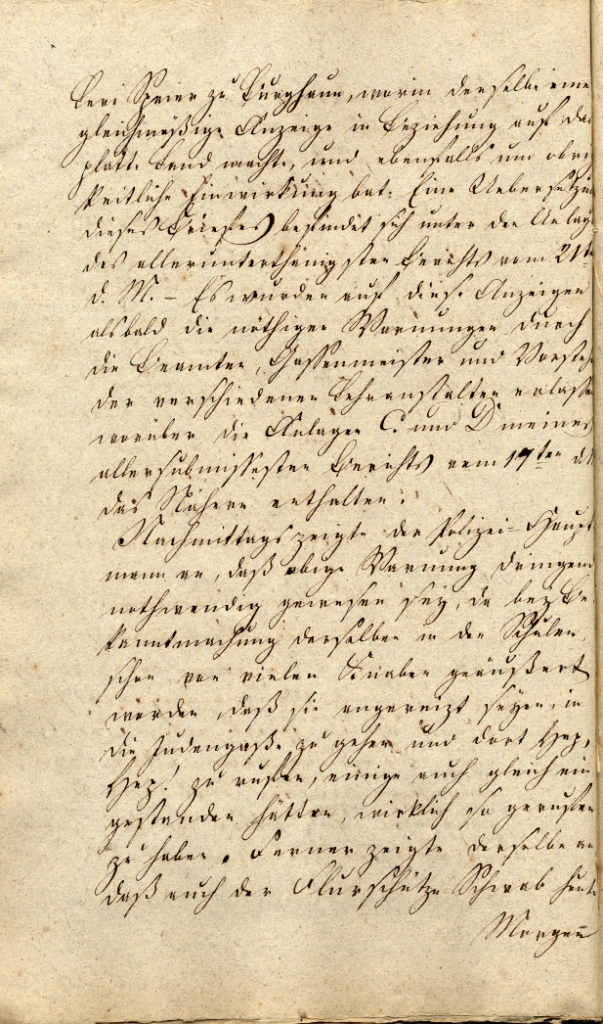 Levi Speier zu Burghaun, worin derselbe eine
gleichmäßige Anzeige in Beziehung auf das
platte Land machte, und ebenfalls um obrig
keitliche Einwirkung bat. Eine Uebersetzung
dieses Briefes befindet sich unter den Anlagen
des allerunterthänigsten Berichts vom 21ten
d. M. – Es wurden auf diese Anzeigen
alsbald die nöthigen Warnungen durch
die Beamten, Gassenmeister und Vorsteher
der verschiedenen Lehranstalten erlassen
worüber die Anlagen C. und D meines
allersubmissesten Berichts vom 17ten d. M.
das Nähere enthalten.
Nachmittags zeigte der Polizei-Haupt
mann an, daß obige Warnung dringend
nothwendig gewesen sey, da bey Be
kanntmachung derselben in den Schulen
schon von vielen Knaben geäußert
worden, daß sie angereizt seyen, in
die Judengaße zu gehen und dort Hep,
Hep! zu rufen, einige auch gleich ein
gestanden hätten, wirklich so gerufen
zu haben. Ferner zeigte derselbe an
daß auch der Flurschütze Schwab heute
Morgen